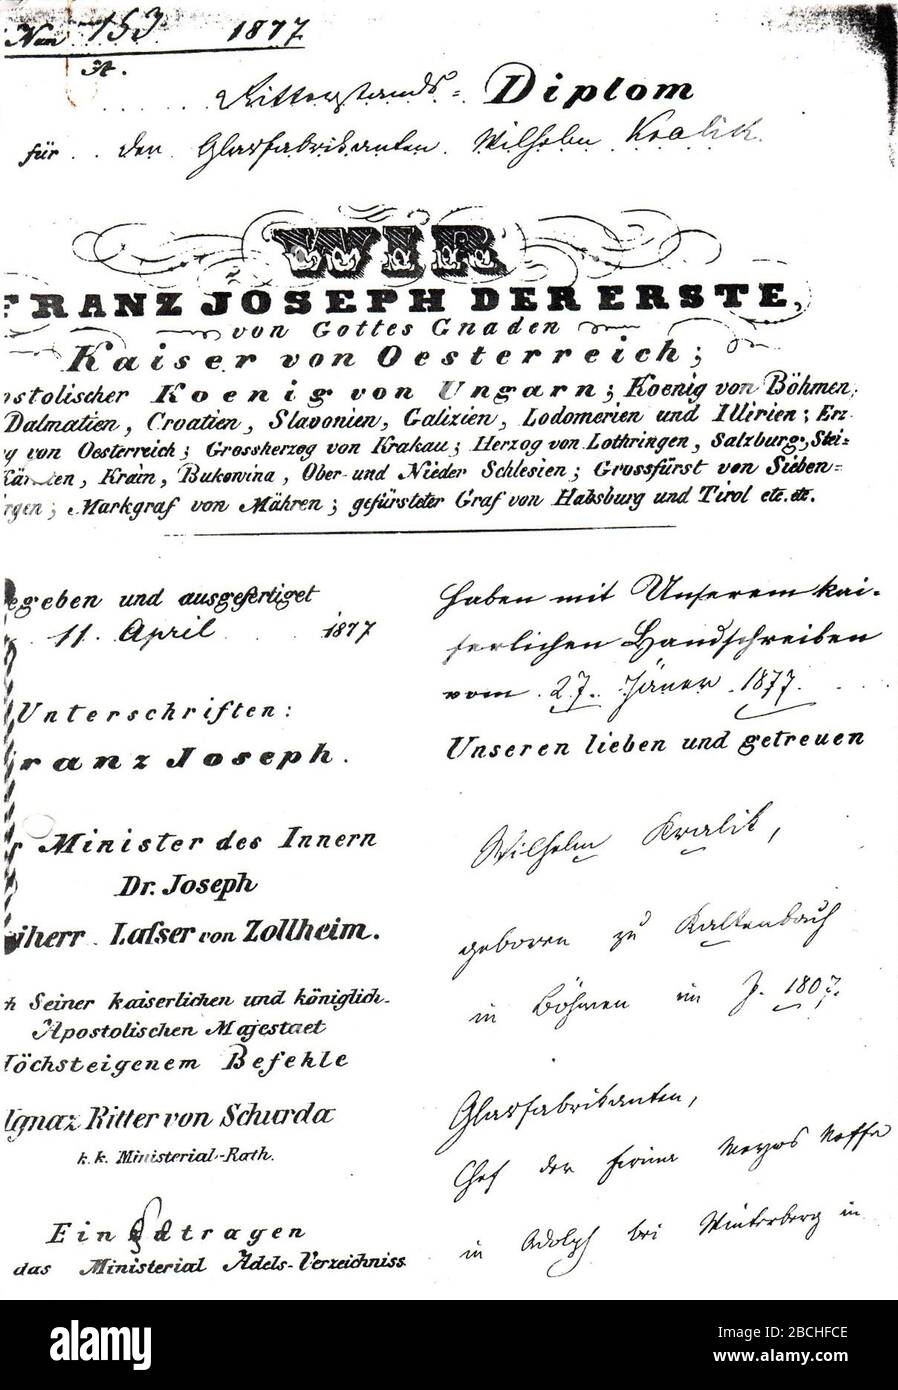 Num 153 1877
A.
Ritterstands= Diplom
für den Glasfabrikanten Wilhelm Kralik
WIR
FRANZ JOSEPH DER ERSTE,
von Gottes Gnaden
Kaiser von Oesterreich;
ostolischer Koenig von Ungarn; Koenig von Böhmen,
Dalmatien, Croatien, Slavonien, Galizien, Lodomerien und Illirien; Erz-
g von Oesterreich; Grossherzog von Krakau; Herzog von Lothringen, Salzburg, Stei=
Kärnten, Krain, Bukovina, Ober- und Nieder Schlesien; Grossfürst von Sieben=
rgen; Markgraf von Mähren; gefürsteter Graf von Habsburg und Tirol etc. etc.
egeben und ausgefertiget
11. April 1877
Unterschriften:
Franz Joseph.
r Minister des Innern
Dr. Joseph
eiherr Laſser von Zollheim.
h Seiner kaiserlichen und königlich-
Apostolischen Majestaet
Höchsteigenem Befehle
Ignaz Ritter von Schurda
k. k. Ministerial-Rath.
Einzutragen
das Ministerial Adels-Verzeichniss.
Haben mit Unserem kai-
serlichen Handschreiben
vom 27. Jäner 1877.
Unseren lieben und getreuen
Wilhelm Kralik,
geboren zu Kaltenbach
in Böhmen im J. 1807.
Glasfabrikanten,
Chef der Firma Meyers Neffe
in Adolph bei Winterberg in
alamy
Image ID: 2BCHFCE
www.alamy.com